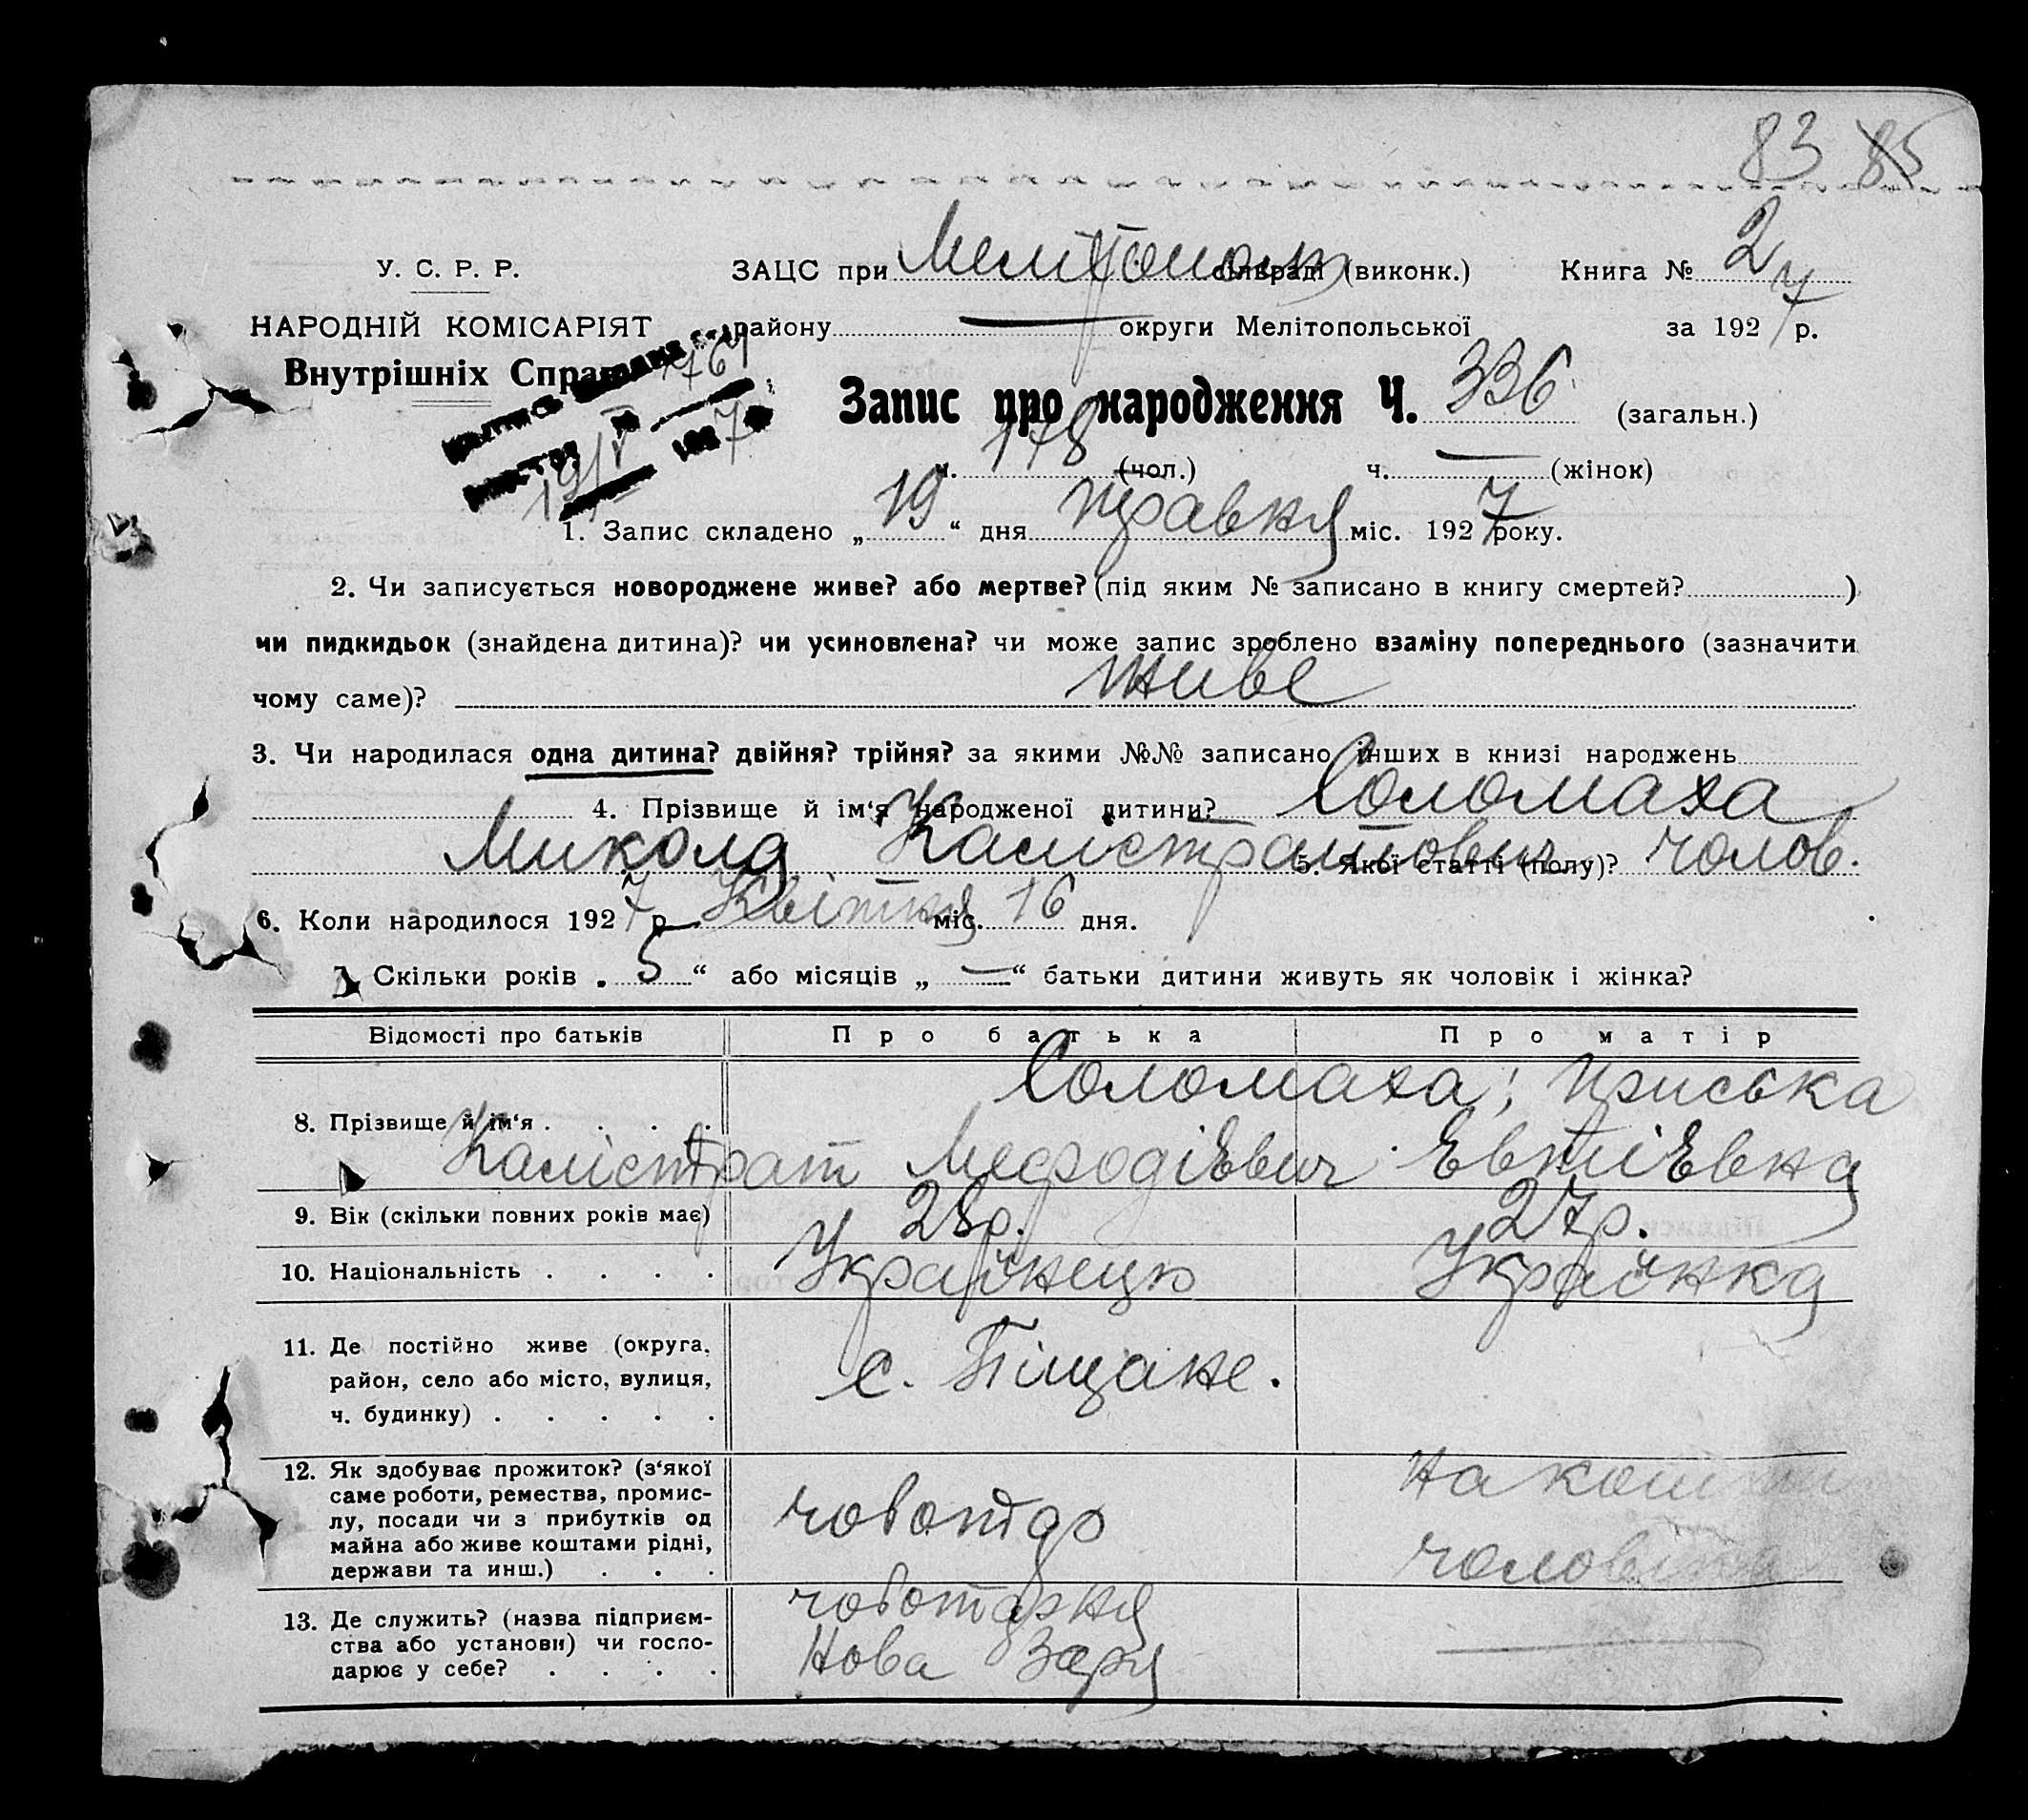 83 85
У. С. Р. Р.
ЗАЦС при Мелітополь сільраді (виконк.) Книга № 2 ч
НАРОДНІЙ КОМІСАРІЯТ
району — округи Мелітопольської за 1927 р.
Внутрішніх Справ
1927
19/V
Запис про народження Ч. 336 (загальн.)
ч. 178 (чол.) ч. — (жінок)
1. Запис складено „19“ дня травня міс. 1927 року.
2. Чи записується новороджене живе? або мертве? (під яким № записано в книгу смертей? )
чи пидкидьок (знайдена дитина)? чи усиновлена? чи може запис зроблено взаміну попереднього (зазначити
чому саме)? живе
3. Чи народилася одна дитина? двійня? трійня? за якими №№ записано інших в книзі народжень
4. Прізвище й ім‘я народженої дитини? Соломаха
Микола Калістратович 5. Якої статті (полу)? чолов.
6. Коли народилося 1927 р. Квітня міс. 16 дня.
7. Скільки років „5“ або місяців „—“ батьки дитини живуть як чоловік і жінка?
Відомості про батьків Про батька Про матір
8. Прізвище й ім‘я . . . . Соломаха; Приська
Калістрат Мефодієвич Євтиієвна
9. Вік (скільки повних років має) 28р. 27р.
10. Національність . . . . Українець Українка
11. Де постійно живе (округа,
район, село або місто, вулиця,
ч. будинку) . . . . .
с. Піщане.
12. Як здобуває прожиток? (з‘якої
саме роботи, ремества, промис-
лу, посади чи з прибутків од
майна або живе коштами рідні,
держави та инш.) . . .
чоботар
на кошти
чоловіка
13. Де служить? (назва підприєм-
ства або установи) чи госпо-
дарює у себе? . . . .
чоботарня
Нова Заря
—